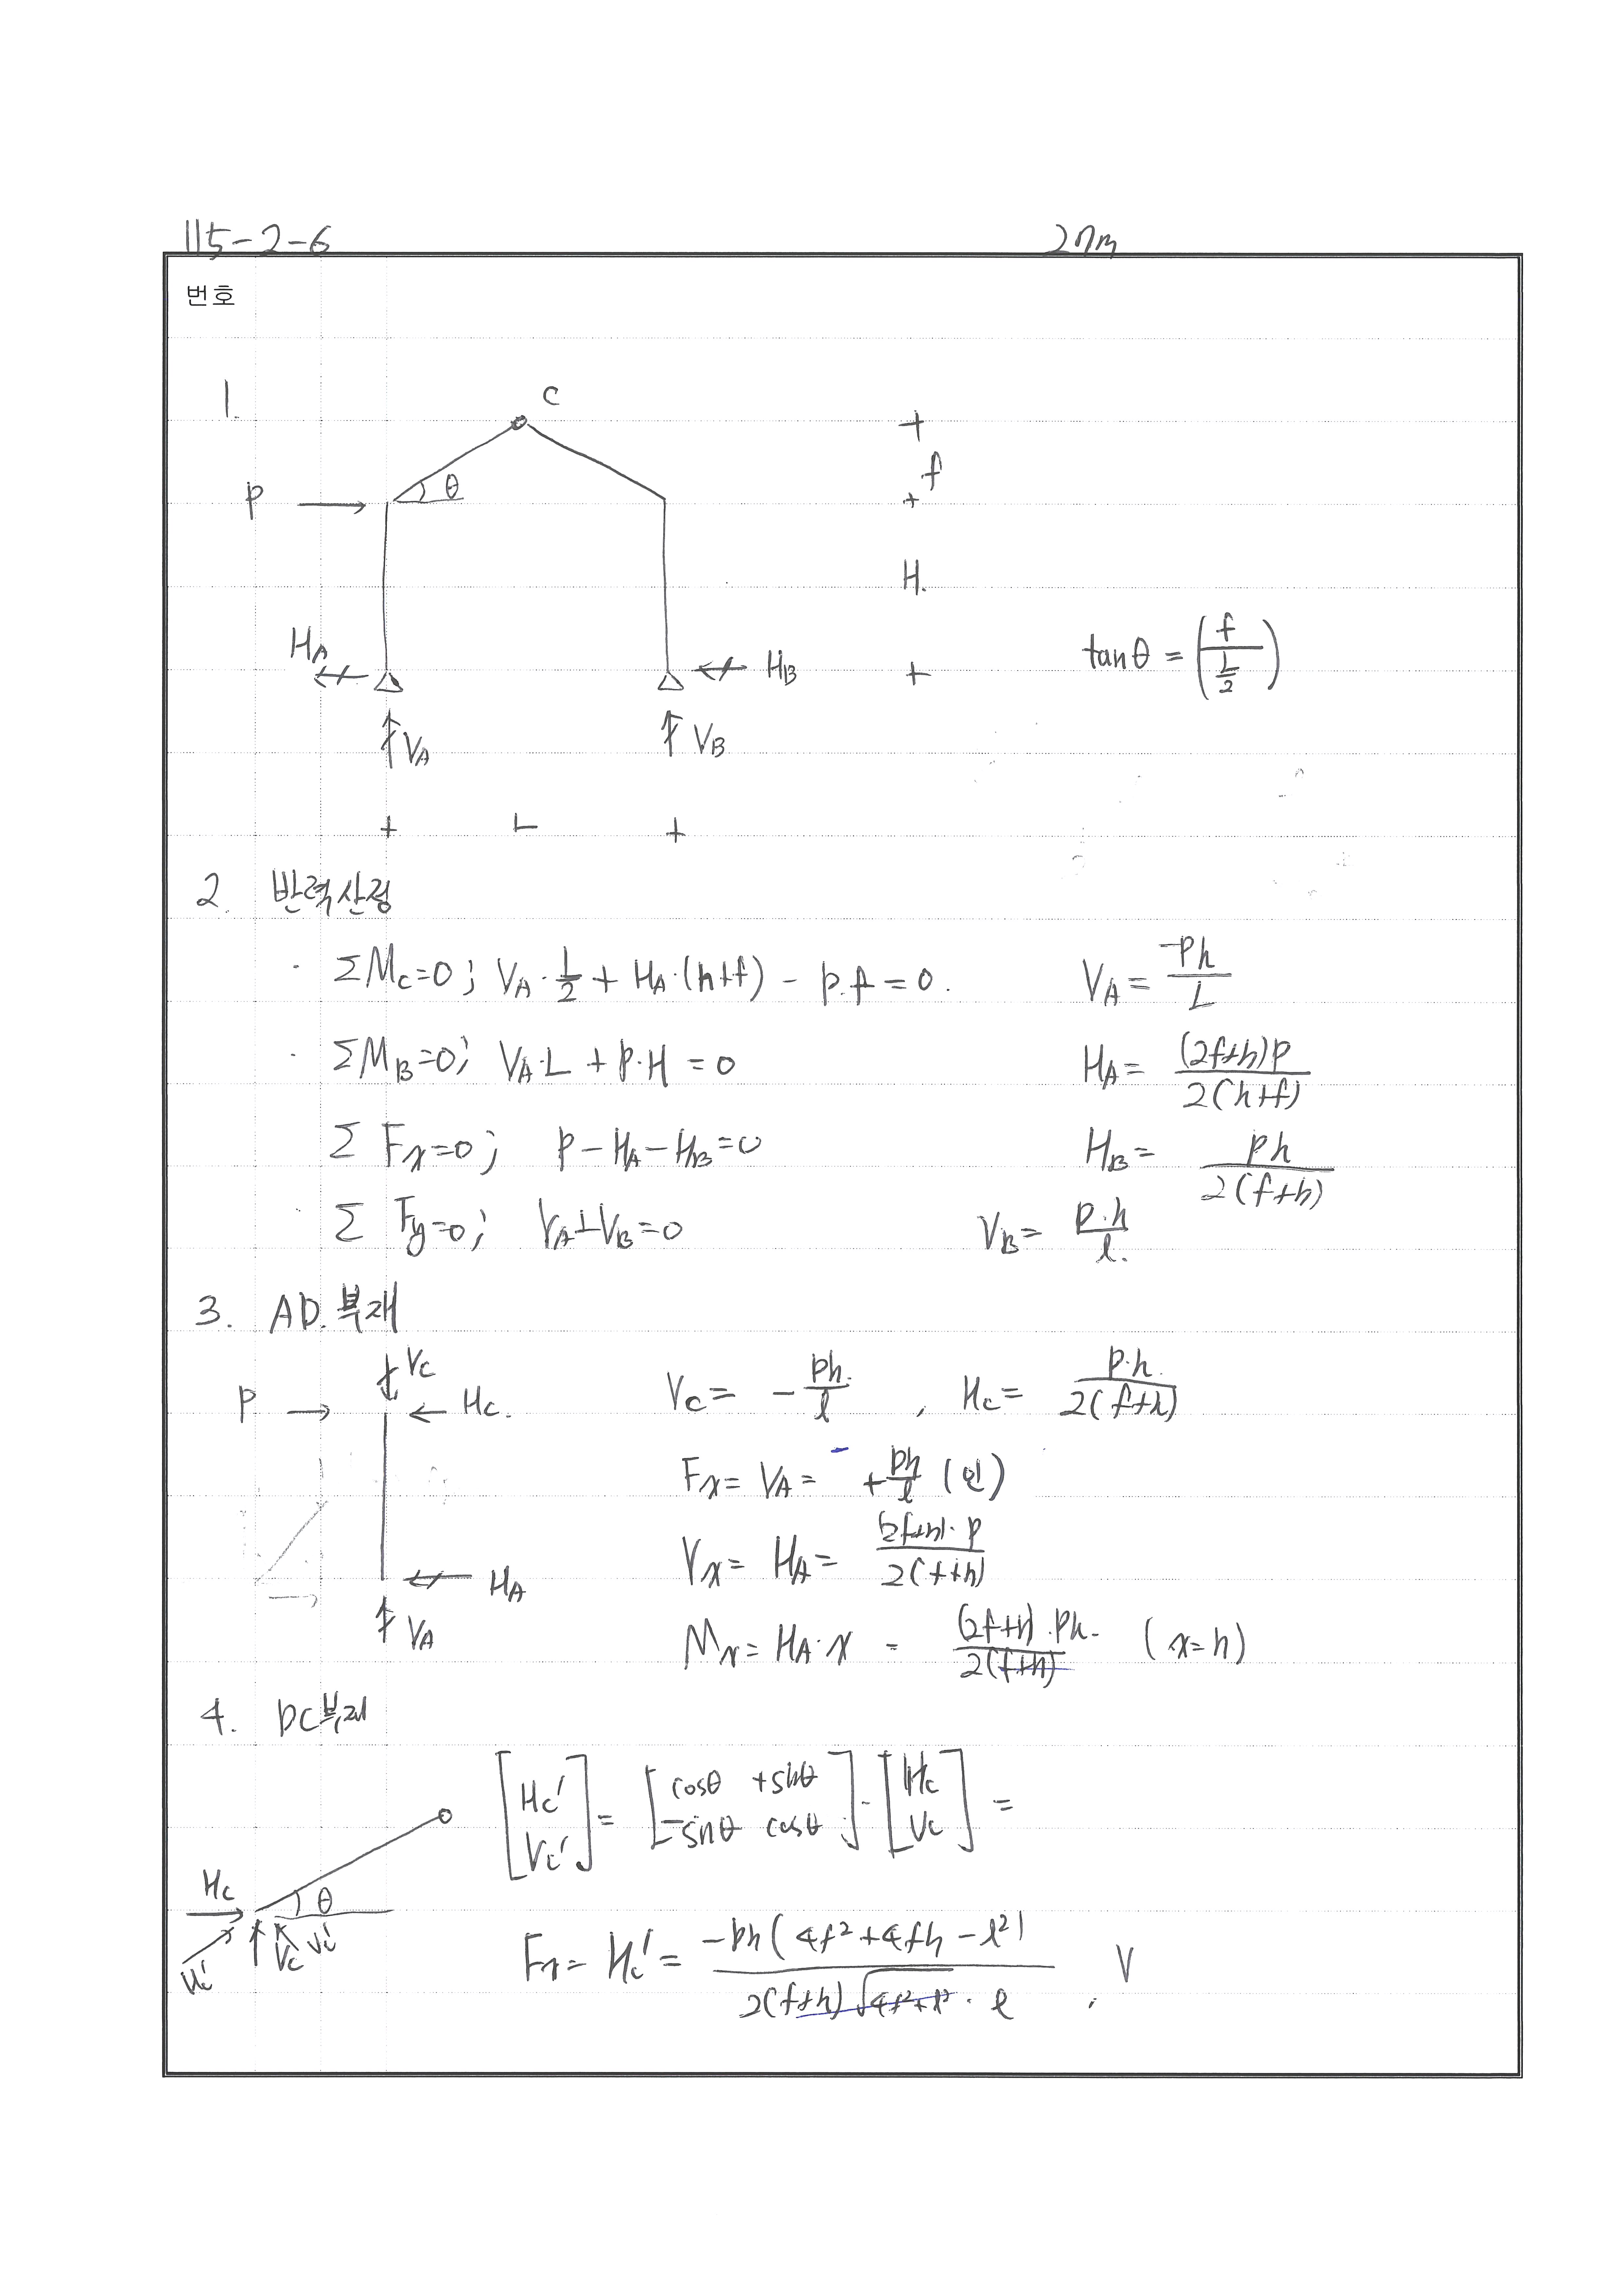 115-2-6
번호
1.
C
P
θ
f
H.
H_A
H_B
tanθ = (f / (L/2))
V_A
V_B
L
2. 반력산정
· ΣM_C=0; V_A·L/2 + H_A·(h+f) - P·f = 0.
V_A = -Ph/L
· ΣM_B=0; V_A·L + P·H = 0
H_A = (2f+h)P / 2(h+f)
Σ F_x=0; P-H_A-H_B=0
H_B = Ph / 2(f+h)
· Σ F_y=0; V_A+V_B=0
V_B = P·h / l.
3. AD.부재
V_C
P
H_C.
V_C = - Ph/l , H_C = P·h. / 2(f+h)
F_x = V_A = - + Ph/l (인)
V_x = H_A = (2f+h)·P / 2(f+h)
H_A
V_A
M_x = H_A·x = (2f+h)·Ph. / 2(f+h) (x=h)
4. DC부재
[H_C' V_C'] = [cosθ +sinθ -sinθ cosθ]·[H_C V_C] =
H_C
θ
V_C
V_C'
H_C'
F_x = H_C' = -Ph(4f²+4fh-l²) / 2(f+h)√(4f²+l²)·l , V